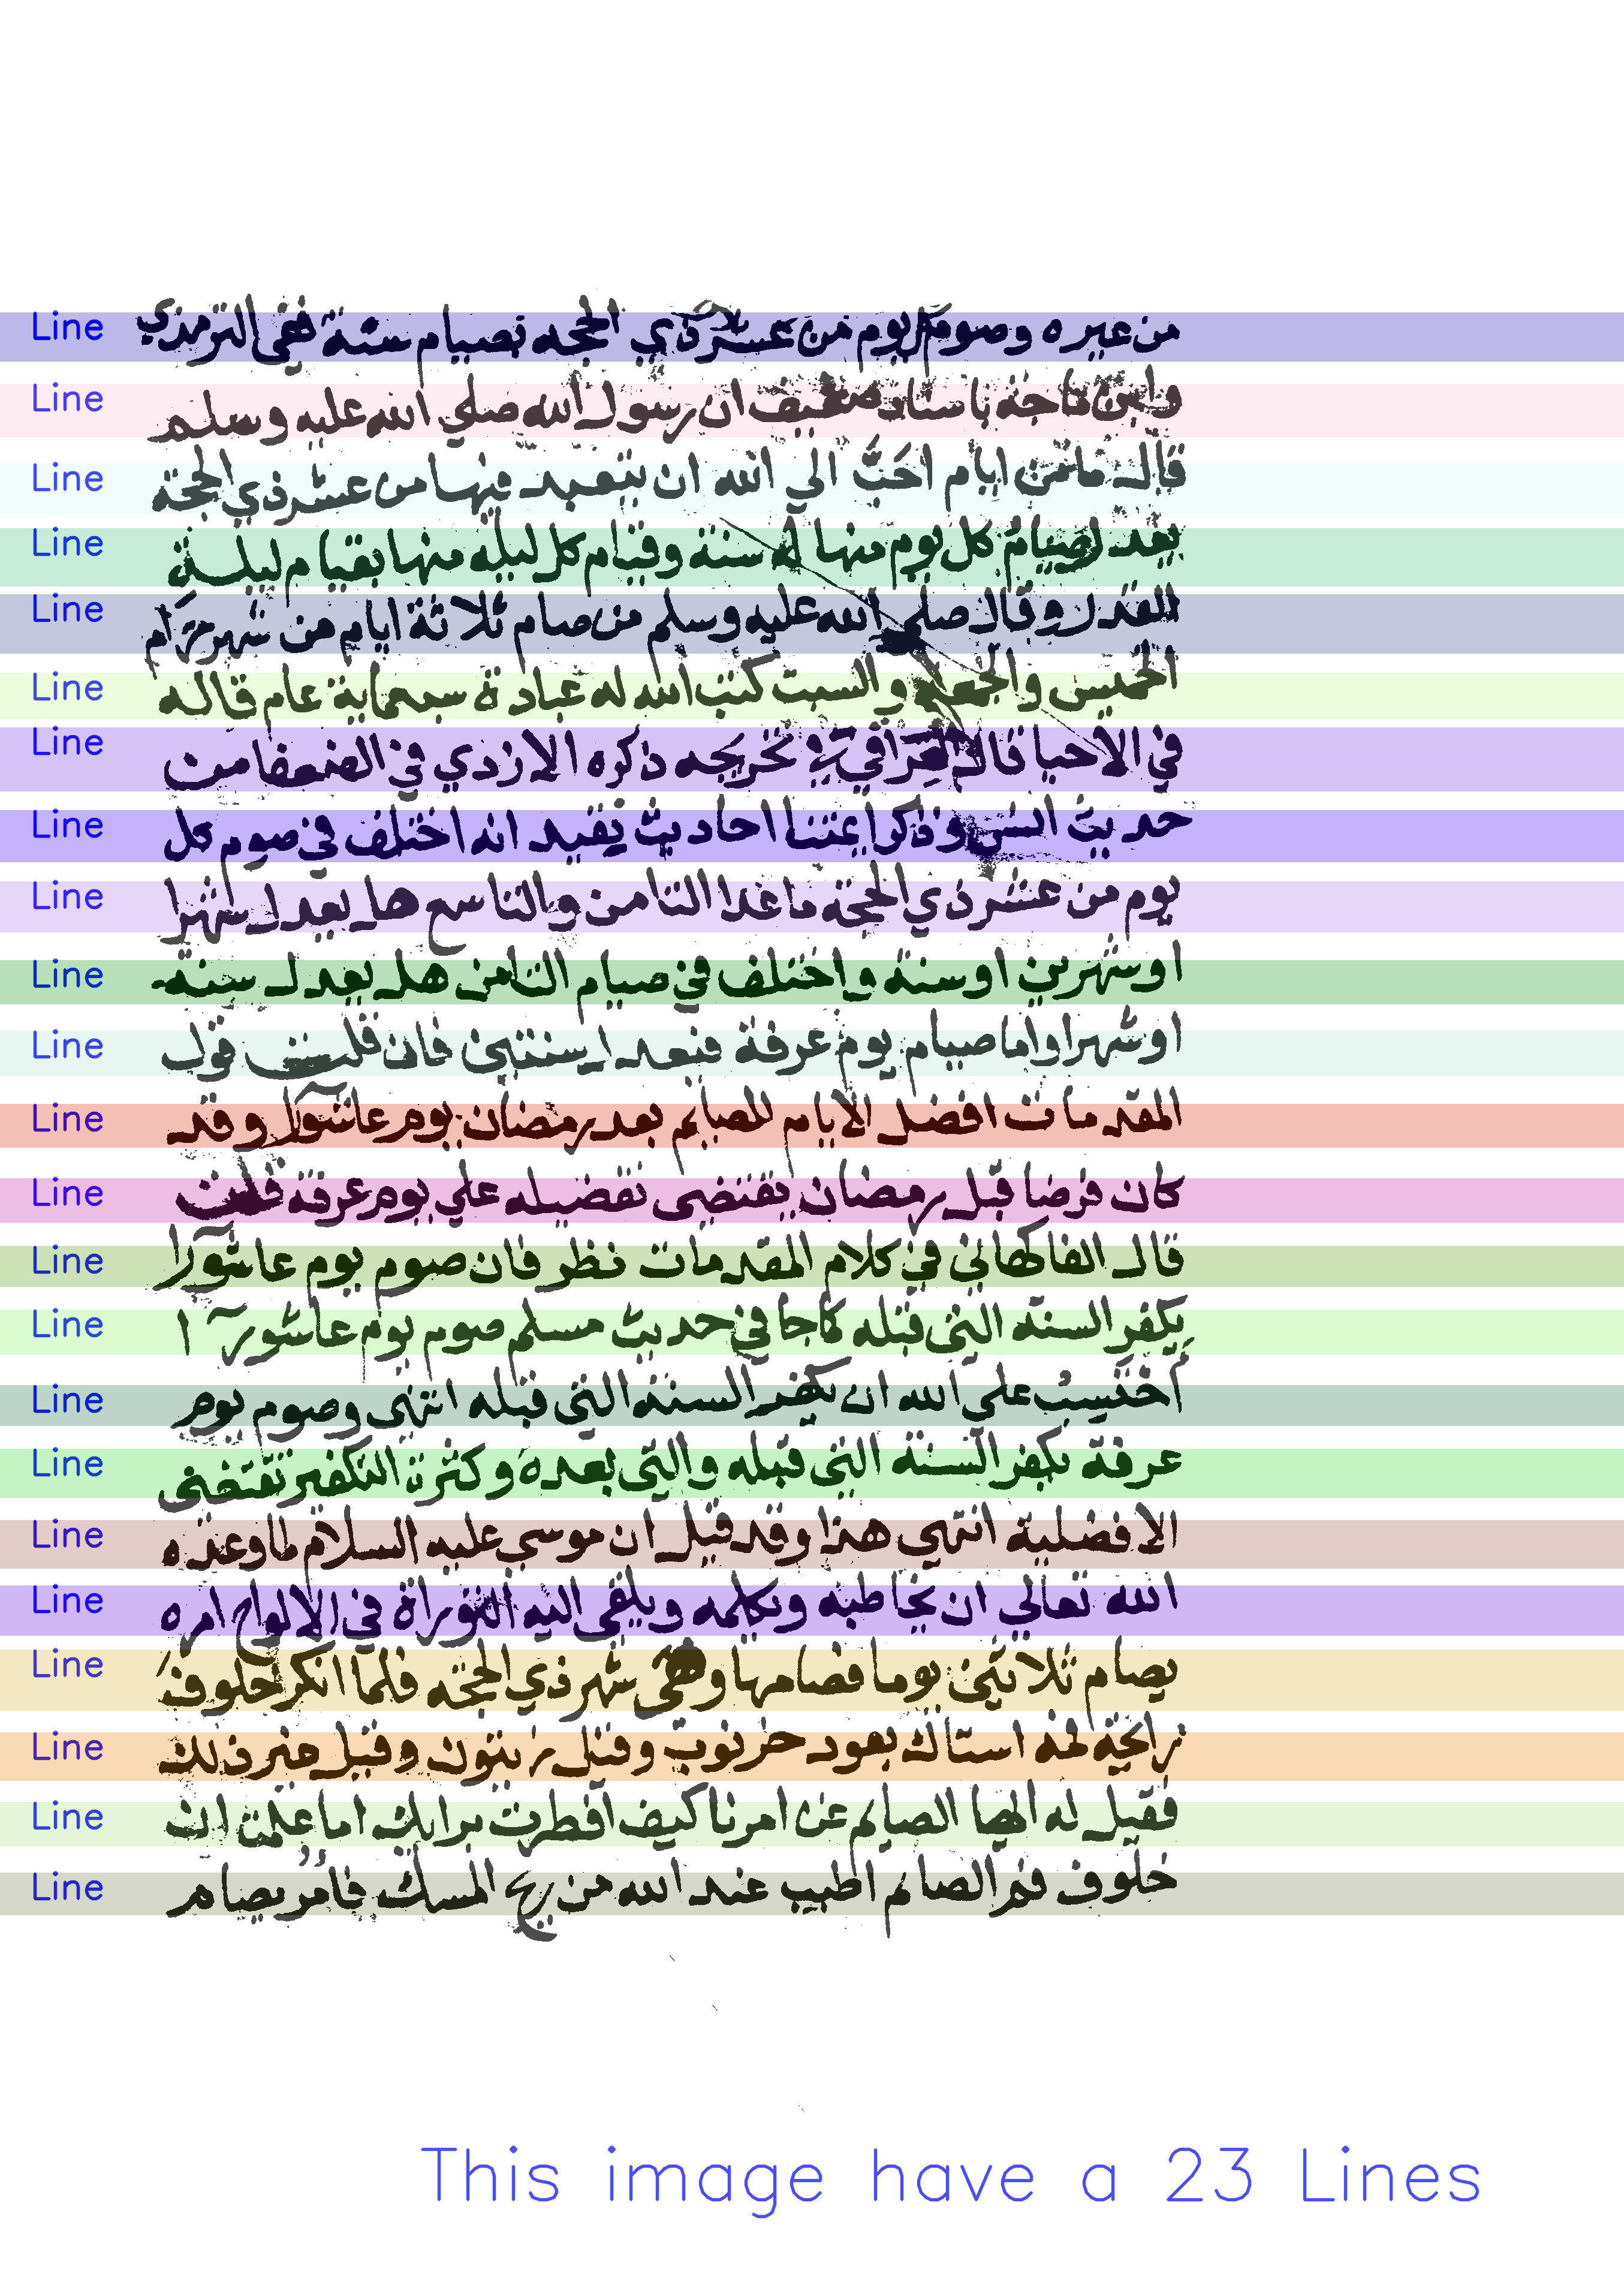 Line من غيره وصوم كل يوم من عشر ذي الحجه بصيام سنة ففي الترمذي
Line وابن ماجة باسناد ضعيف ان رسول الله صلي الله عليه وسلم
Line قال ما من ايام احَبُّ الي الله ان يتعبد فيها من عشر ذي الحجة
Line يعد صيام كل يوم منها سنة وقيام كل ليله منها بقيام ليلة
Line القدر وقال صلي الله عليه وسلم من صام ثلاثة ايام من شهر حرام
Line الخميس والجمعة والسبت كتب الله له عبادة سبعماية عام قاله
Line في الاحيا قال العراقي في تخريجه ذكره الازدي في الضعفا من
Line حديث انس وذكر ايمتنا احاديث يفيد انه اختلف في صوم كل
Line يوم من عشر ذي الحجة ما عدا الثامن والتاسع هل يعدل شهرا
Line او شهرين او سنة واختلف في صيام الثامن هل يعدل سنة
Line او شهرا واما صيام يوم عرفة فيعدل سنتين فان قلت قول
Line المقدمات افضل الايام للصيام بعد رمضان يوم عاشورا وقد
Line كان فرضا قبل رمضان يقتضى تفضيله علي يوم عرفة قلت
Line قال الفاكهاني في كلام المقدمات نظر فان صوم يوم عاشورا
Line يكفر السنة التي قبله كما جا في حديث مسلم صوم يوم عاشورآ ا
Line أحْتَسِبُ علي الله ان يكفر السنة التي قبله انتهى وصوم يوم
Line عرفة يكفر السنة التي قبله والتي بعده وكثرة التكفير تقتضى
Line الافضلية انتهي هذا وقد قيل ان موسي عليه السلام لما وعده
Line الله تعالي ان يخاطبه ويكلمه ويلقى اليه التوراة في الالواح امره
Line بصيام ثلاثين يوما فصامها وهى شهر ذي الحجه فلما انكر خلوف
Line رايحة فمه استاك بعود خرنوب وقيل زيتون وقيل غير ذلك
Line فقيل له ايها الصايم عن امرنا كيف افطرت برايك اما علمت ان
Line خلوف فم الصايم اطيب عند الله من ريح المسك فامر بصيام
This image have a 23 Lines